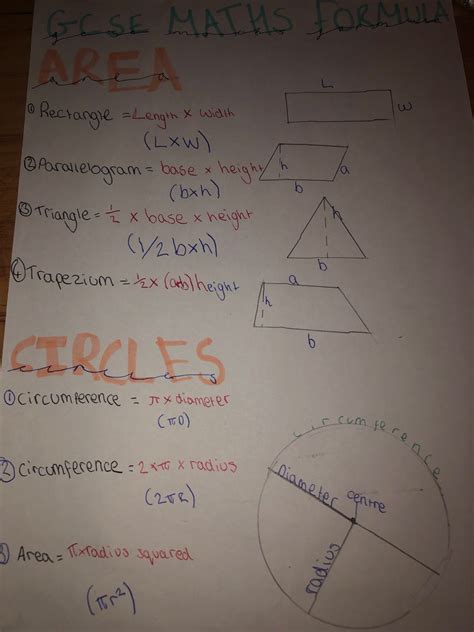 GCSE MATHS FORMULA
AREA
area
L
① Rectangle = Length x width
w
(LxW)
② Parallelogram = base x height
h
a
(bxh)
b
③ Triangle = 1/2 x base x height
h
(1/2 bxh)
b
④ Trapezium = 1/2 x (a+b) height
a
h
b
CIRCLES
circles
① Circumference = π x diameter
(πD)
circumference
② Circumference = 2 x π x radius
(2πR)
Diameter
centre
radius
③ Area = π x radius squared
(πr²)